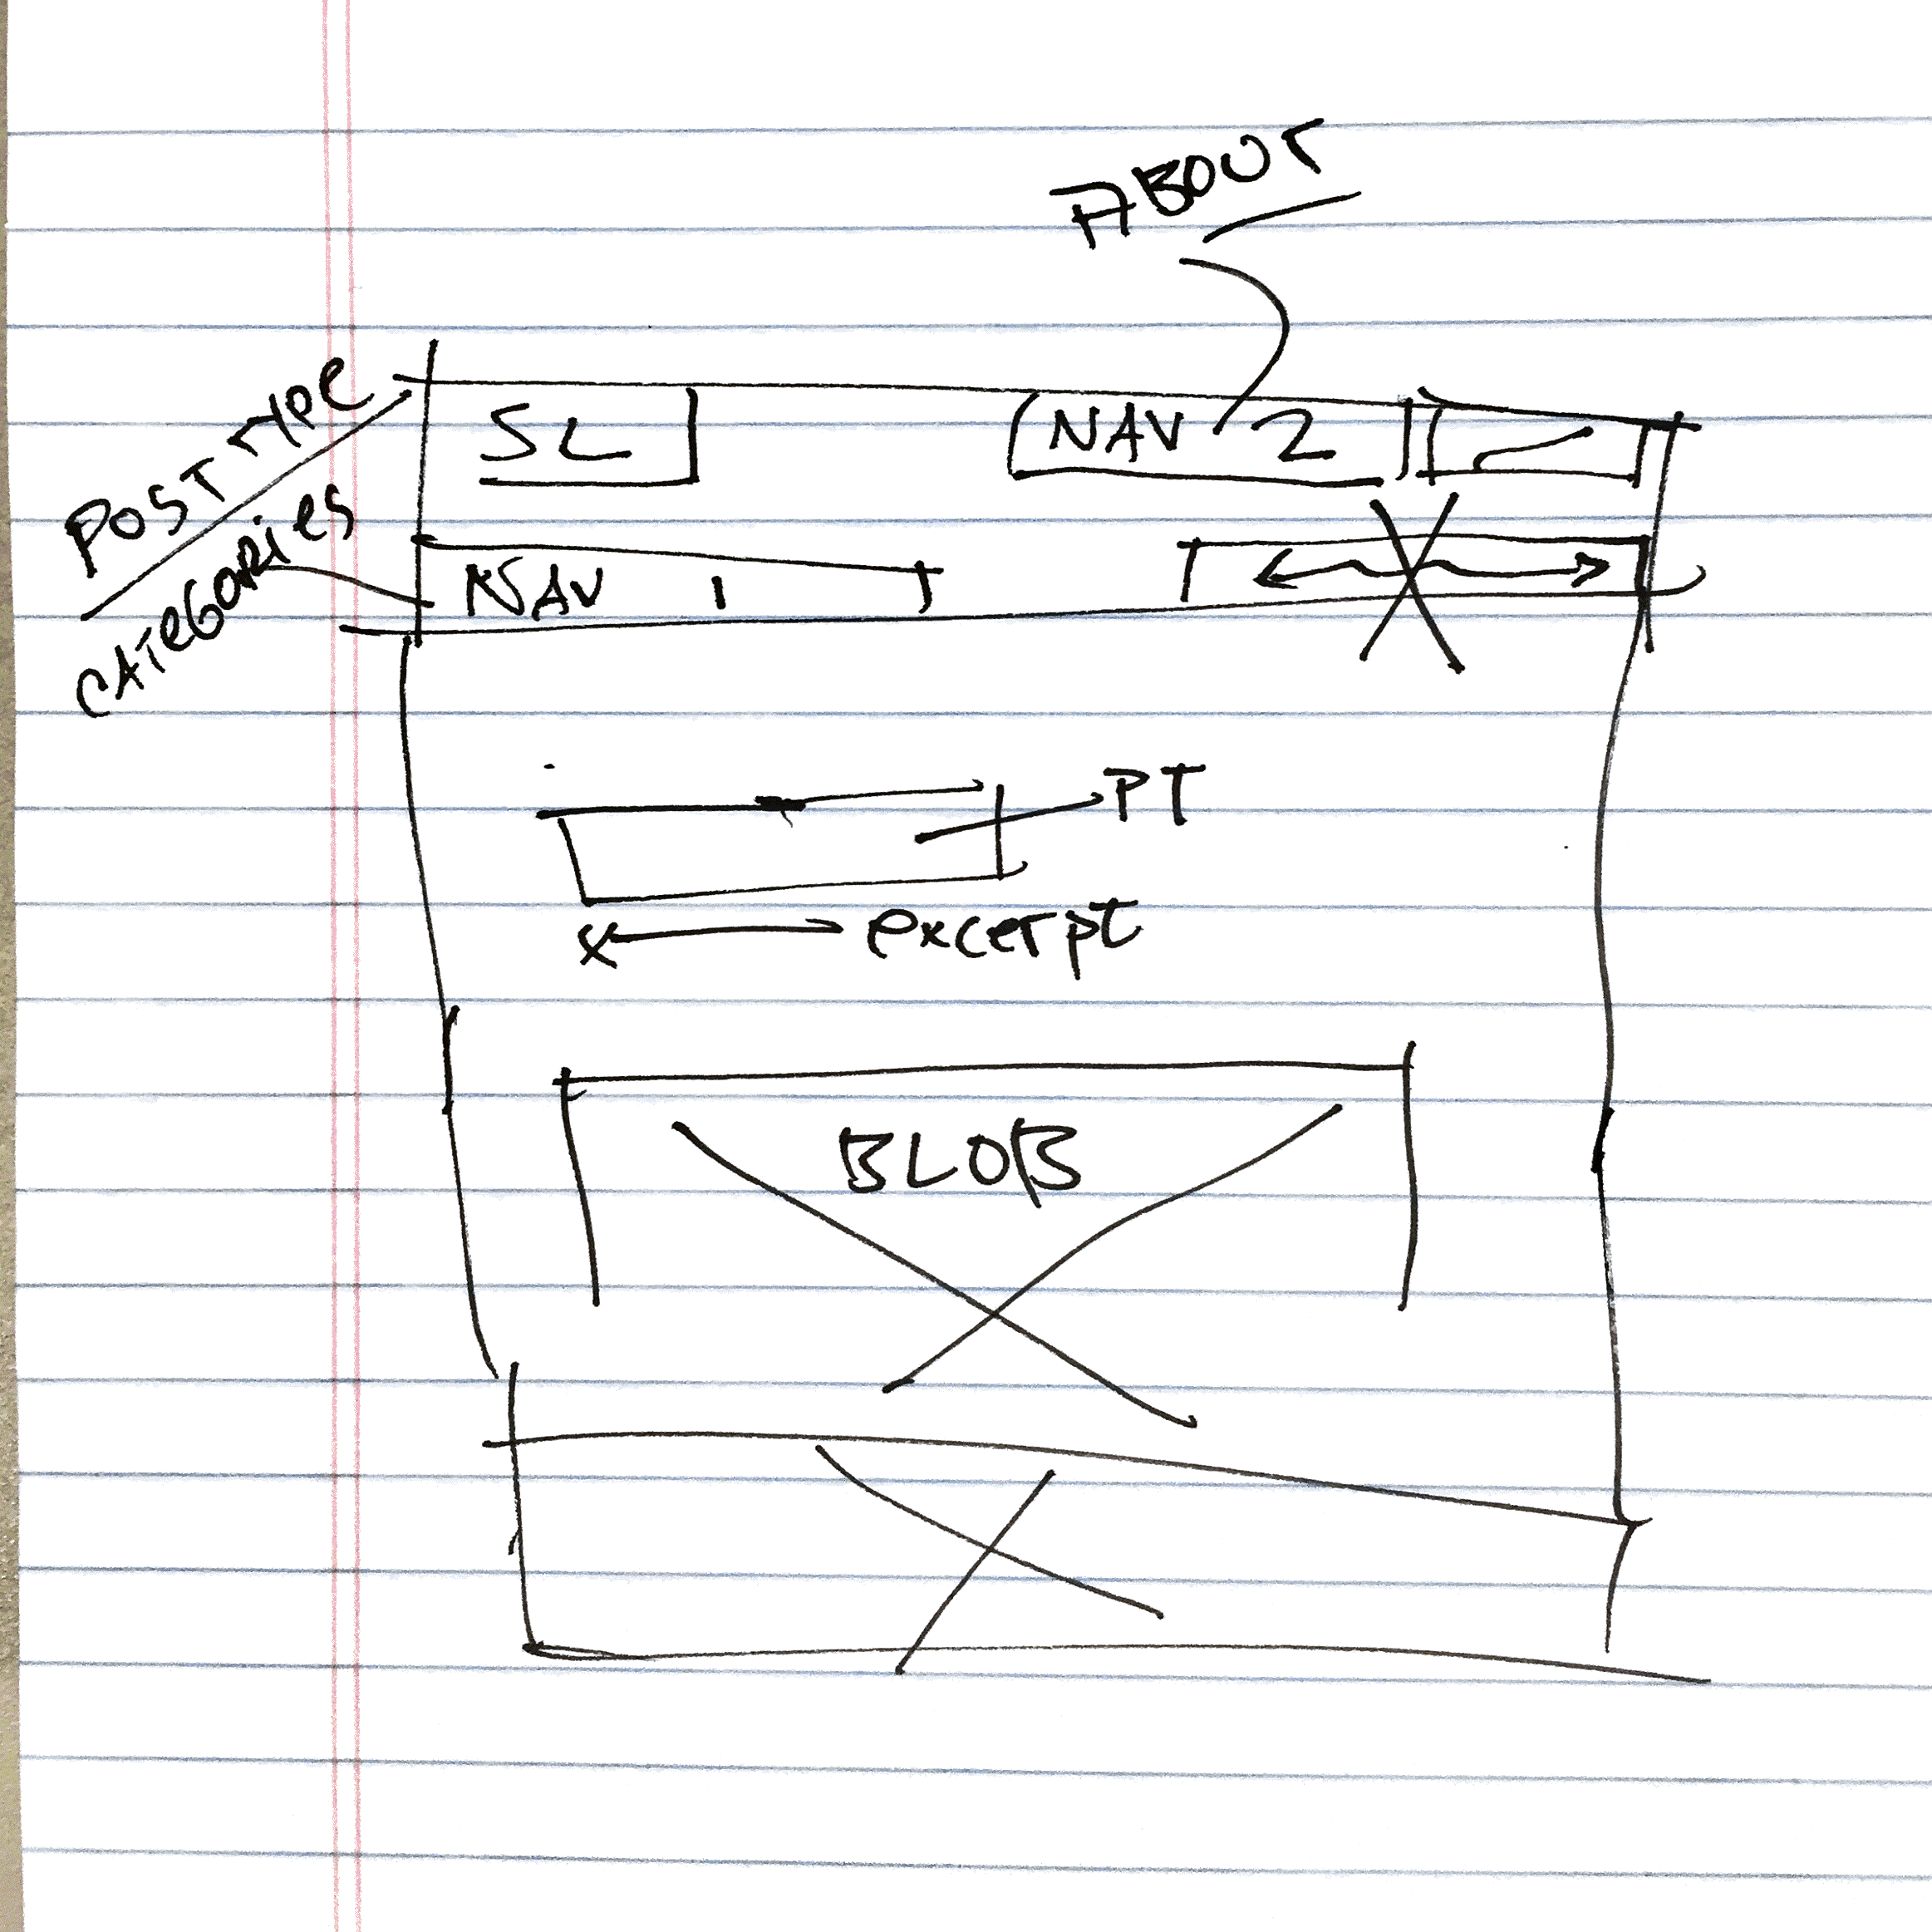 ABOUT
POST TYPE
CATEGORIES
SL
NAV 2
NAV
PT
excerpt
BLOB